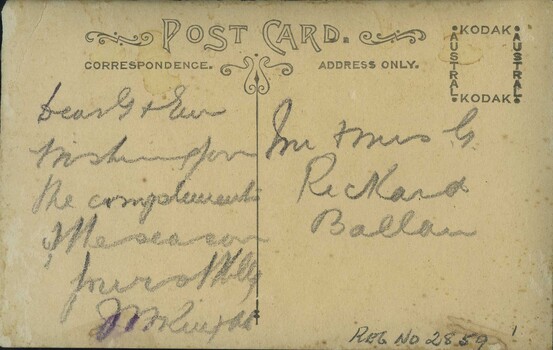 POST CARD.
CORRESPONDENCE. ADDRESS ONLY.
KODAK
AUSTRAL AUSTRAL
KODAK
Dear G & 
Wishing you
the compliments
of the season
yours
Mr & Mrs G
Rickard
Ballan
REG NO 2859